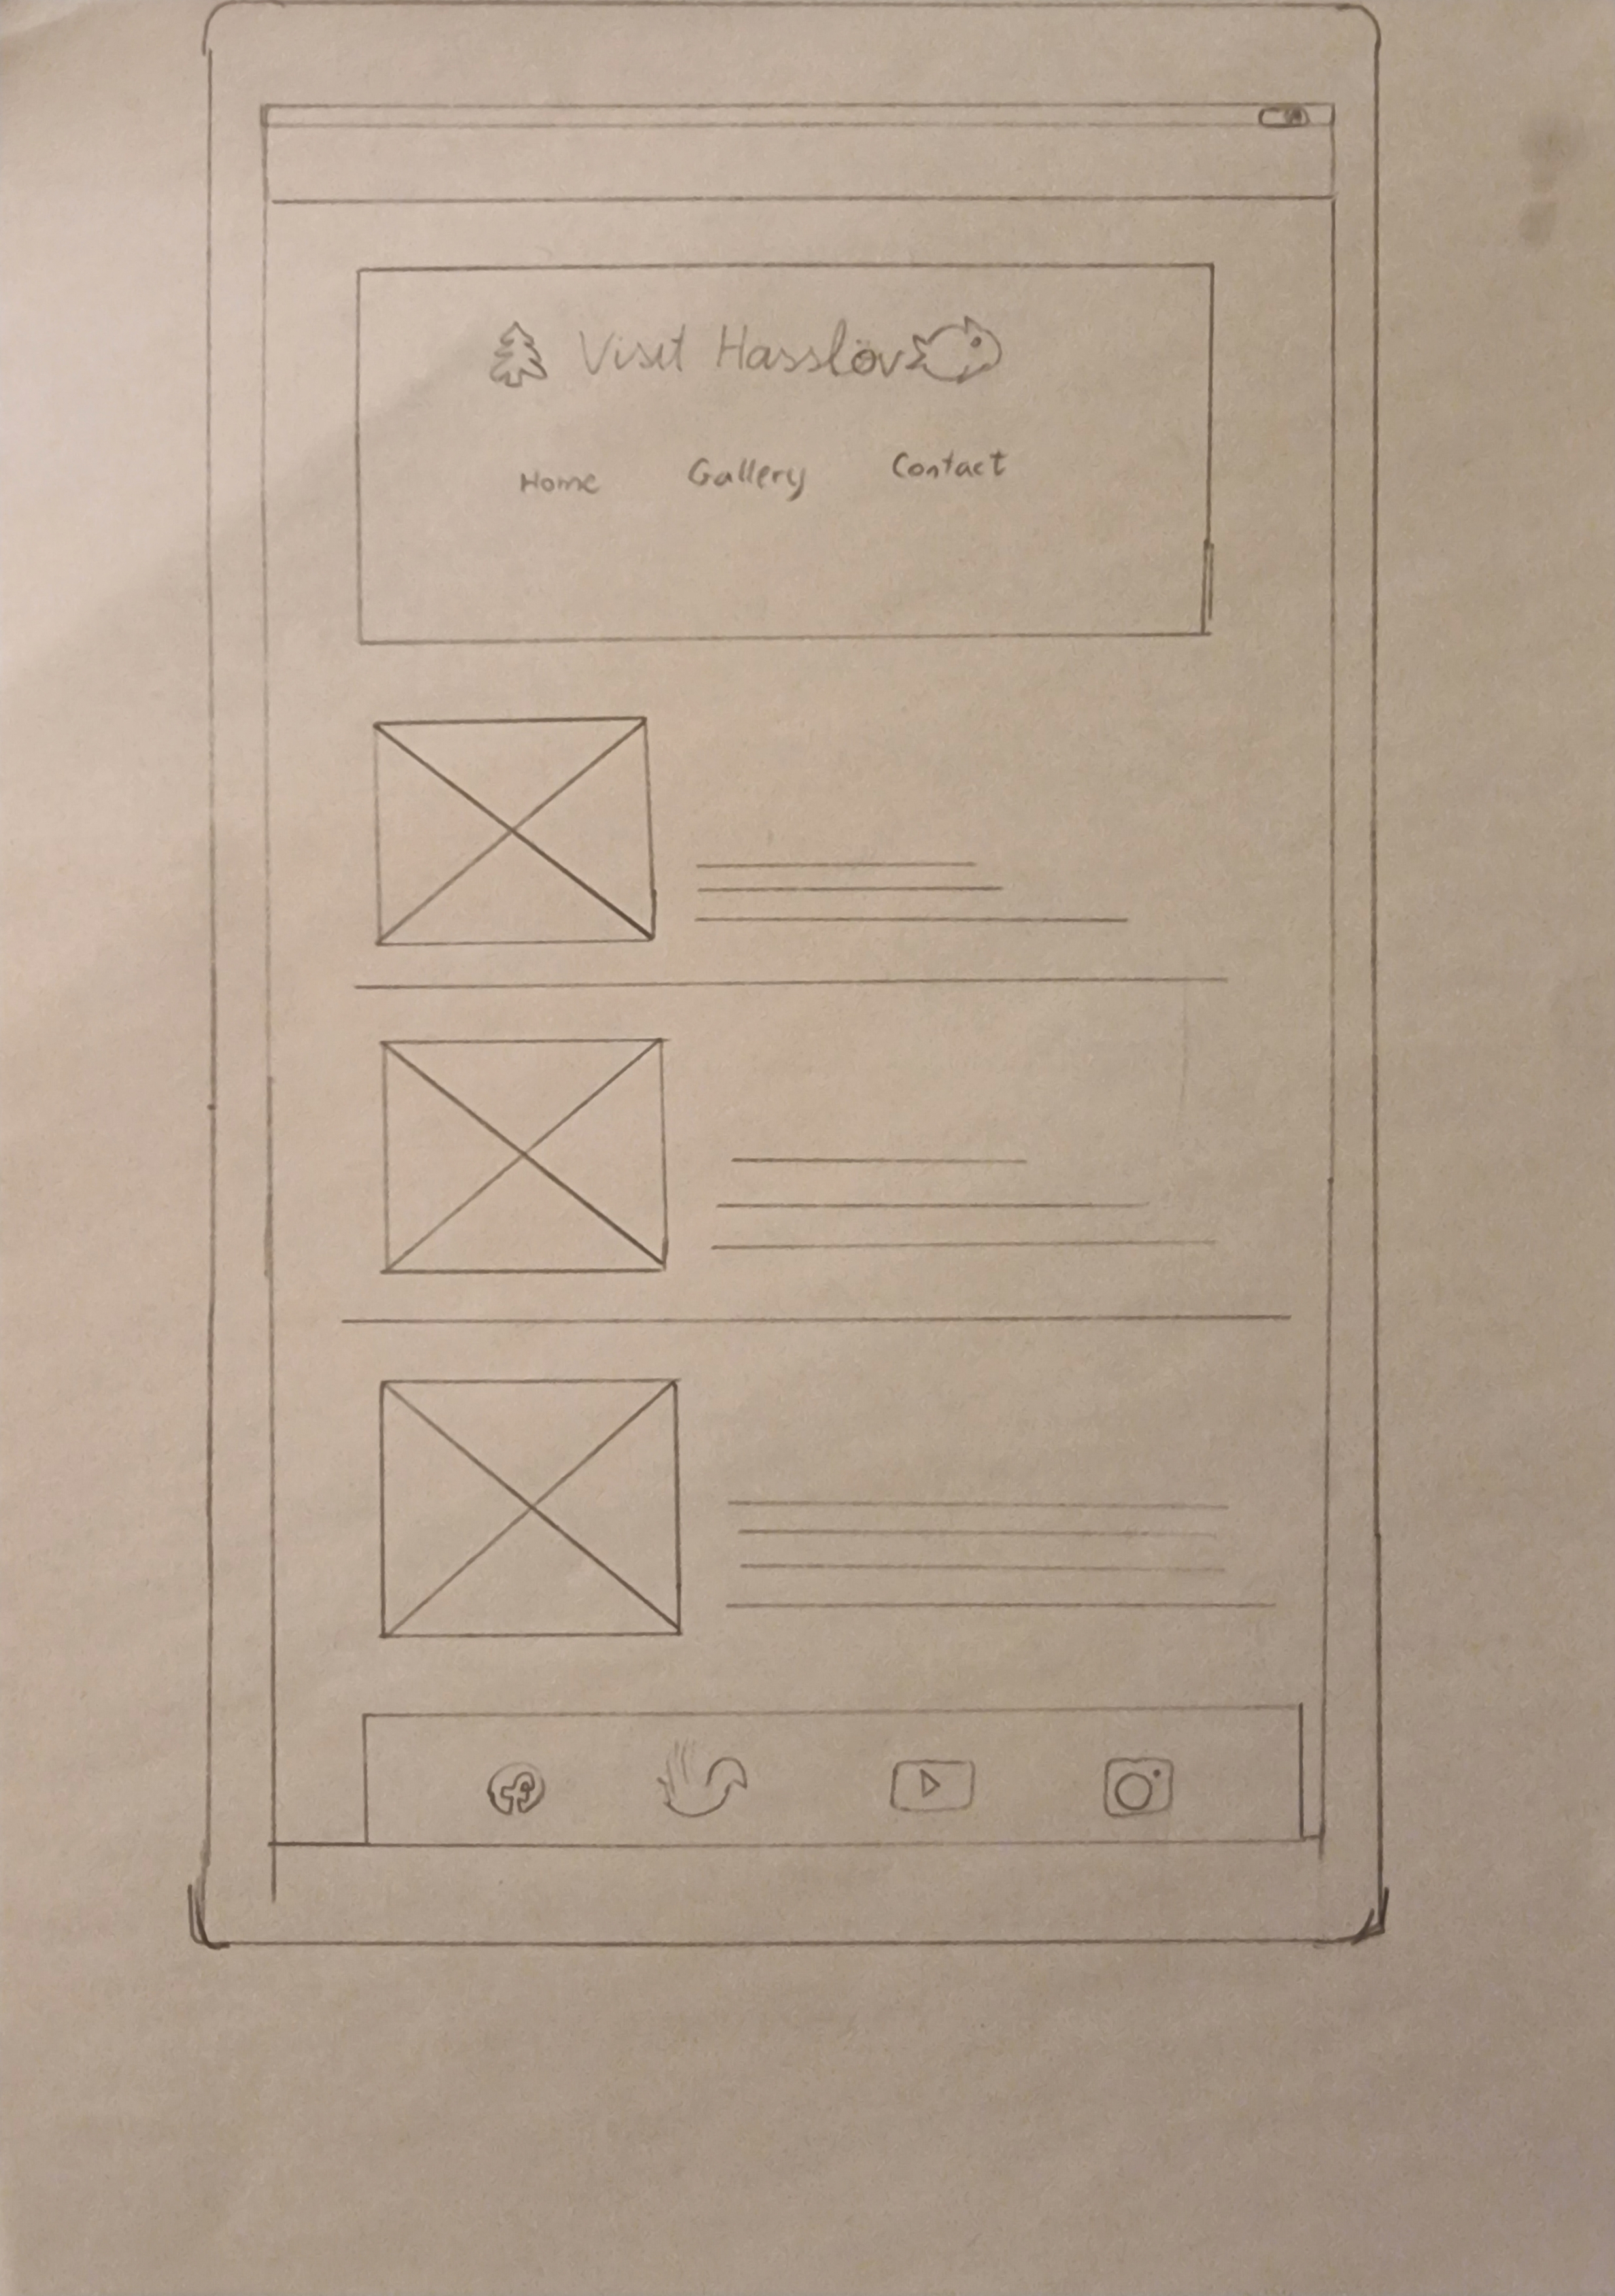 Visit Hasslöv
Home Gallery Contact